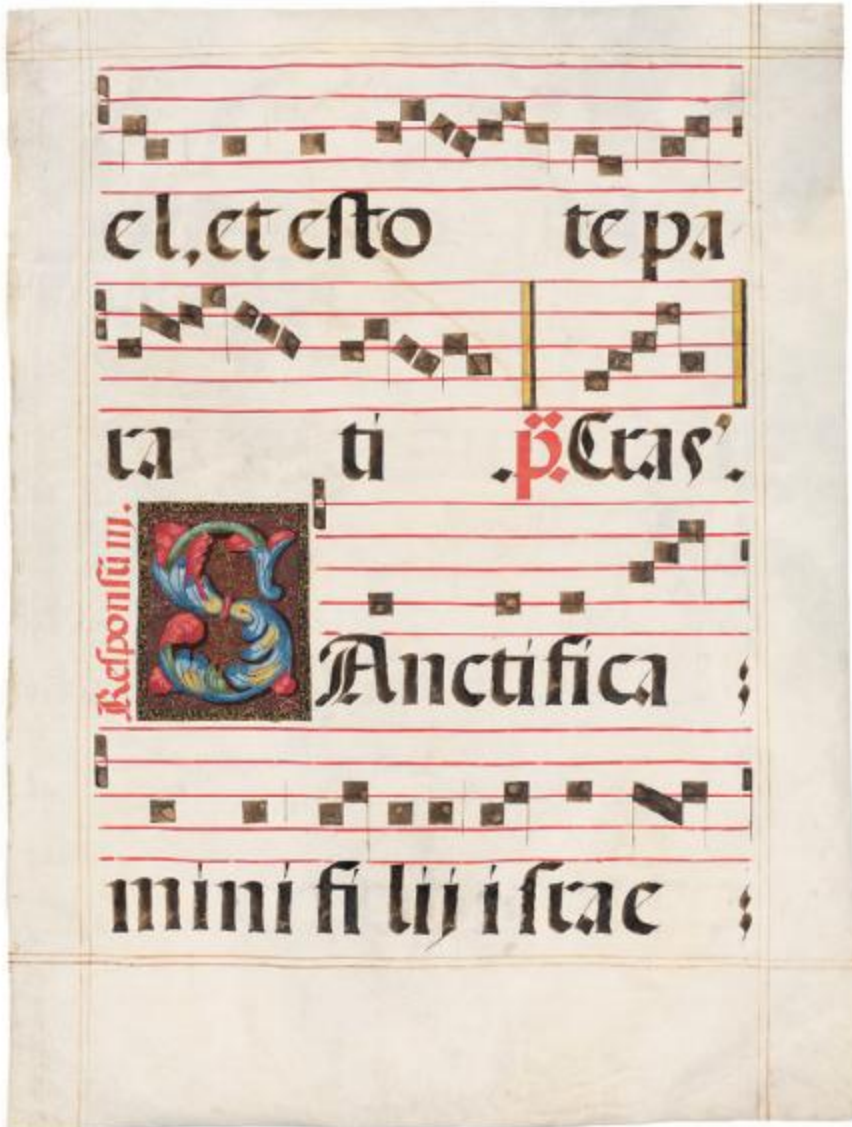 el, et esto te pa
ra ti .p̈. Cras'.
Responsũ iij.
SAnctifica
mini filij israe